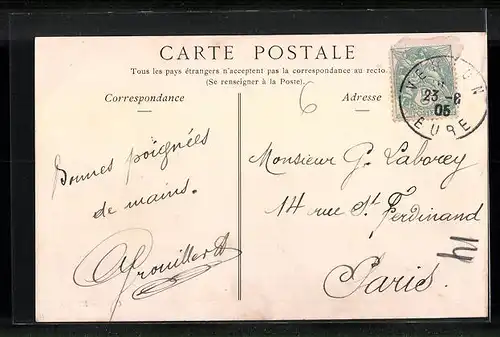 CARTE POSTALE
Tous les pays étrangers n'acceptent pas la correspondance au recto.
(Se renseigner à la Poste).
Correspondance
Adresse
6
VERNON
23 -8
05
EURE
Bonnes poignées
de mains.
Monsieur G. Laborey
14 rue St Ferdinand
Paris.
14